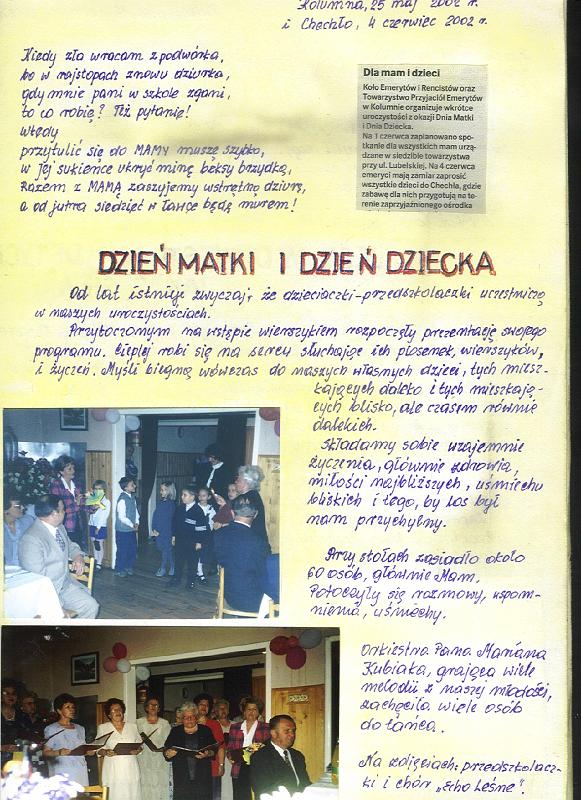 Kolumna, 25 maj 2002 r.
i Chechło, 4 czerwiec 2002 r.
Kiedy zła wracam z podwórka,
bo w rajstopach znowu dziurka,
gdy mnie pani w szkole zgani,
to co robię? Też pytanie!
Wtedy
przytulić się do MAMY muszę szybko,
w Jej sukience ukryć minę beksy brzydką,
Razem z MAMĄ zaszyjemy wstrętną dziurę,
a od jutra siedzieć w ławce będę murem!
Dla mam i dzieci
Koło Emerytów i Rencistów oraz
Towarzystwo Przyjaciół Emerytów
w Kolumnie organizuje wkrótce
uroczystości z okazji Dnia Matki
i Dnia Dziecka.
Na 1 czerwca zaplanowano spo-
tkanie dla wszystkich mam urzą-
dzane w siedzibie towarzystwa
przy ul. Lubelskiej. Na 4 czerwca
emeryci mają zamiar zaprosić
wszystkie dzieci do Chechła, gdzie
zabawę dla nich przygotują na te-
renie zaprzyjaźnionego ośrodka
DZIEŃ MATKI I DZIEŃ DZIECKA
Od lat istnieje zwyczaj, że dzieciaczki-przedszkolaczki uczestniczą
w naszych uroczystościach.
Przytoczonym na wstępie wierszykiem rozpoczęły prezentację swojego
programu. Cieplej robi się na sercu słuchając ich piosenek, wierszyków,
i życzeń. Myśli biegną wówczas do naszych własnych dzieci, tych miesz-
kających daleko i tych mieszkają-
cych blisko, ale czasem równie
dalekich.
Składamy sobie wzajemnie
życzenia, głównie zdrowia,
miłości najbliższych, uśmiechu
bliskich i tego, by los był
nam przychylny.
Przy stołach zasiadło około
60 osób, głównie Mam.
Potoczyły się rozmowy, wspom-
nienia, uśmiechy.
Orkiestra Pana Mariana
Kubiaka, grająca wiele
melodii z naszej młodości,
zachęciła wiele osób
do tańca.
Na zdjęciach: przedszkolacz-
ki i chór "Echo Leśne".